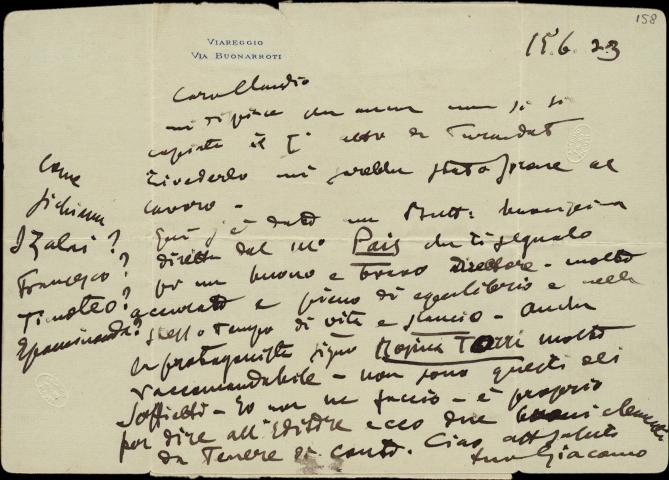 158
VIAREGGIO
VIA BUONARROTI
15.6.23
Caro Clausetti
mi dispiace che ancora non si sia
copiato il I° atto di Turandot
rivederlo mi sarebbe stato giovare al
lavoro -
Qui s'è dato un Butt. buonissima
diretta dal M° Pais che ti segnalo
per un buono e bravo Direttore - molto
accurato e pieno di equilibrio e nello
stesso tempo di vita e slancio - anche
la protagonista sigra Rosina Torri molto
raccomandabile - non sono questi dei
soffietti - Io non ne faccio - è proprio
per dire all'Editore ecco due buoni elementi
da tenere di conto. Ciao aff saluti
tuo Giacomo
Come
si chiama
Izalai?
Francesco?
Timoteo?
Epaminonda?